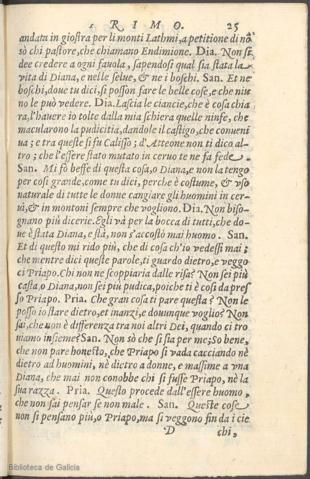 RIMO. 25
andata in giostra per li monti Lathmi, a petitione di nō
sò chi pastore, che chiamano Endimione. Dia. Non si
dee credere a ogni fauola, sapendosi qual sia stata la
vita di Diana, e nelle selue, & ne i boschi. San. Et ne
boschi, doue tu dici, si posson fare le belle cose, e che niu
no le può vedere. Dia. Lascia le ciancie, che è cosa chia
ra, l'hauere io tolte dalla mia schiera quelle ninfe, che
macularono la pudicitia, dandole il castigo, che conueni
ua; e tra queste si fu Calisto; d'Atteone non ti dico al-
tro; che l'essere stato mutato in ceruo te ne fa fede.
San. Mi fo beffe di questa cosa, o Diana, e non la tengo
per cosi grande, come tu dici, perche è costume, & vso
naturale di tutte le donne cangiare gli huomini in cer-
ui, & in montoni sempre che vogliono. Dia. Non biso-
gnano più dicerie. Egli và per la bocca di tutti, che do-
ue è stata Diana, e stà, non s'accostò mai huomo. San.
Et di questo mi rido più, che di cosa ch'io vedessi mai;
che mentre dici queste parole, ti guardo dietro, e veggo
ci Priapo. Chi non ne scoppiaria dalle risa? Non sei più
casta, o Diana, non sei più pudica, poiche ti è cosi da pres
so Priapo. Pria. Che gran cosa ti pare questa? Non le
posso io stare dietro, et inanzi, e douunque voglio? Non
sai, che non è differenza tra noi altri Dei, quando ci tro
uiamo insieme? San. Non sò che si sia per me; So bene,
che non pare honesto, che Priapo si vada cacciando nè
dietro ad huomini, nè dietro a donne, e massime a vna
Diana, che mai non conobbe chi si fusse Priapo, nè la
sua razza. Pria. Questo procede dall'essere huomo,
che non sai pensar se non male. San. Queste cose
non si pensano più, o Priapo, ma si veggono fin da i cie
D chi,
Biblioteca de Galicia